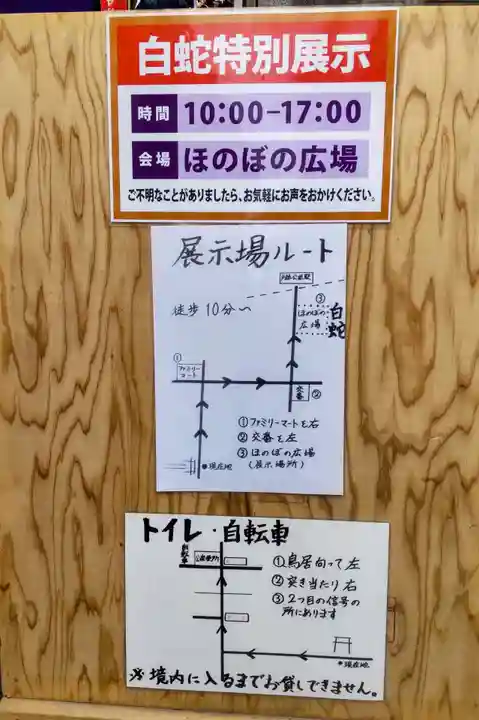 白蛇特別展示
時間 10:00-17:00
会場 ほのぼの広場
ご不明なことがありましたら、お気軽にお声をおかけください。
展示場ルート
徒歩10分〜
③
ほのぼの
広場
白蛇
①
ファミリー
マート
交番
②
①ファミリーマートを右
②交番を左
③ほのぼの広場
(展示場所)
現在地
トイレ・自転車
自転車
①鳥居向って左
②突き当たり右
③2つ目の信号の
所にあります
現在地
※境内に入るまでお貸しできません。